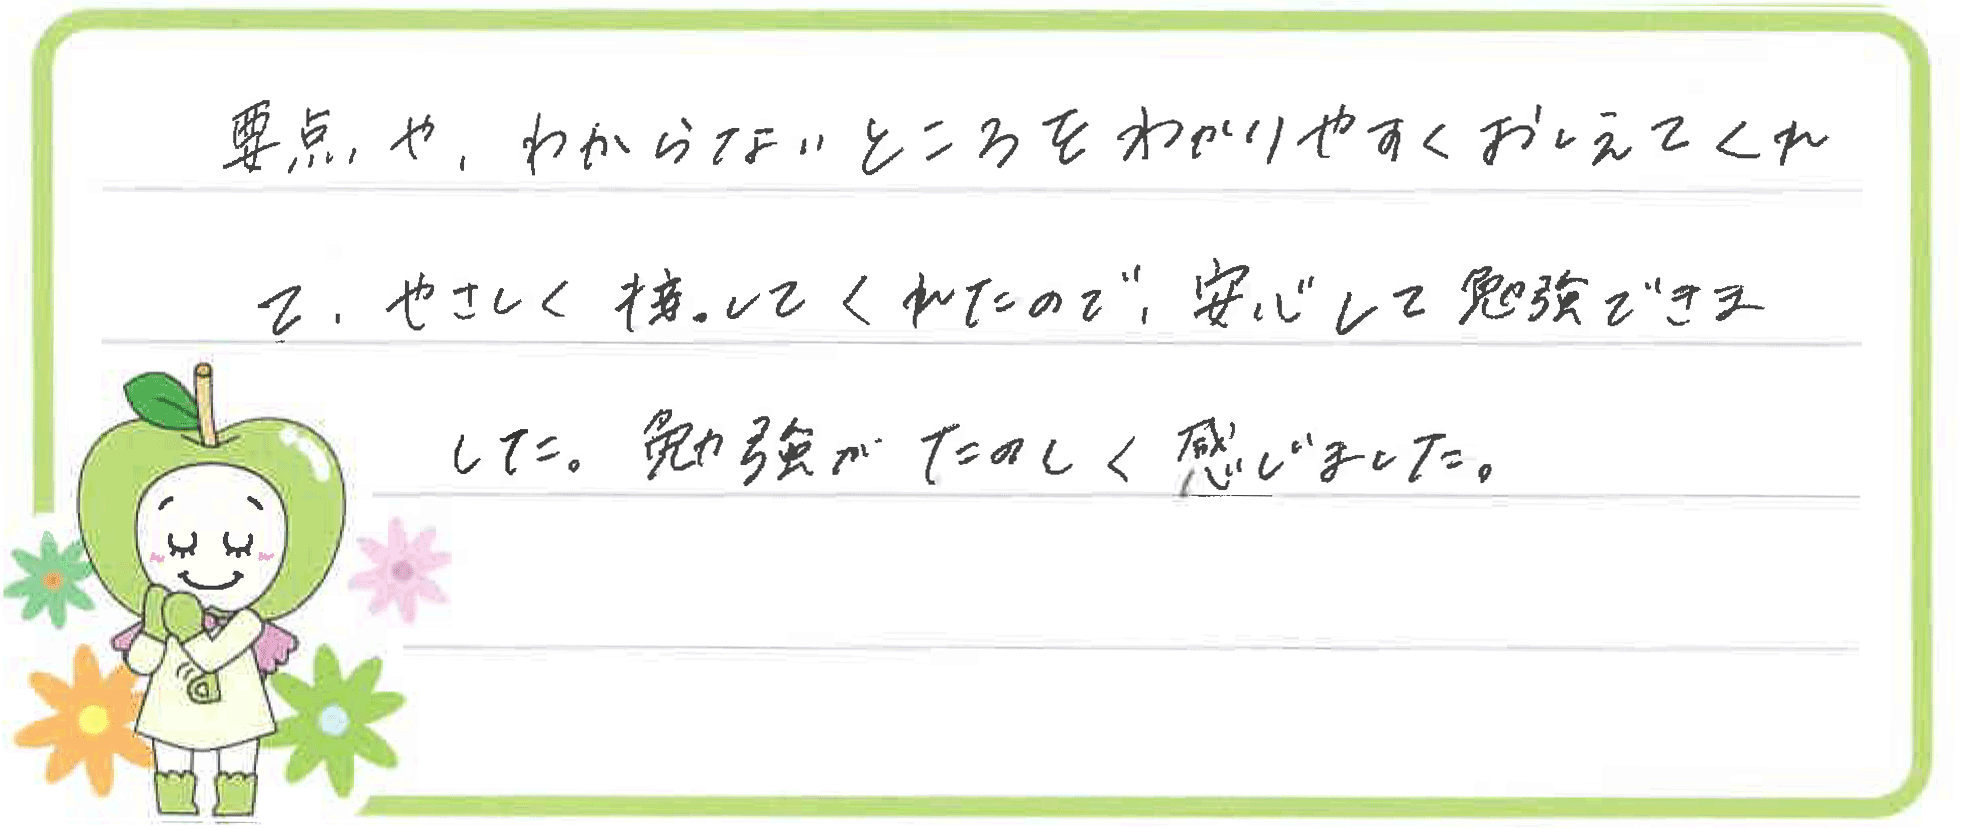 要点や、わからないところをわかりやすくおしえてくれ
て、やさしく接してくれたので、安心して勉強できま
した。勉強がたのしく感じました。